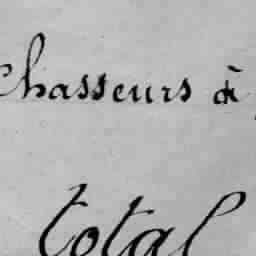 Chasseurs à
total